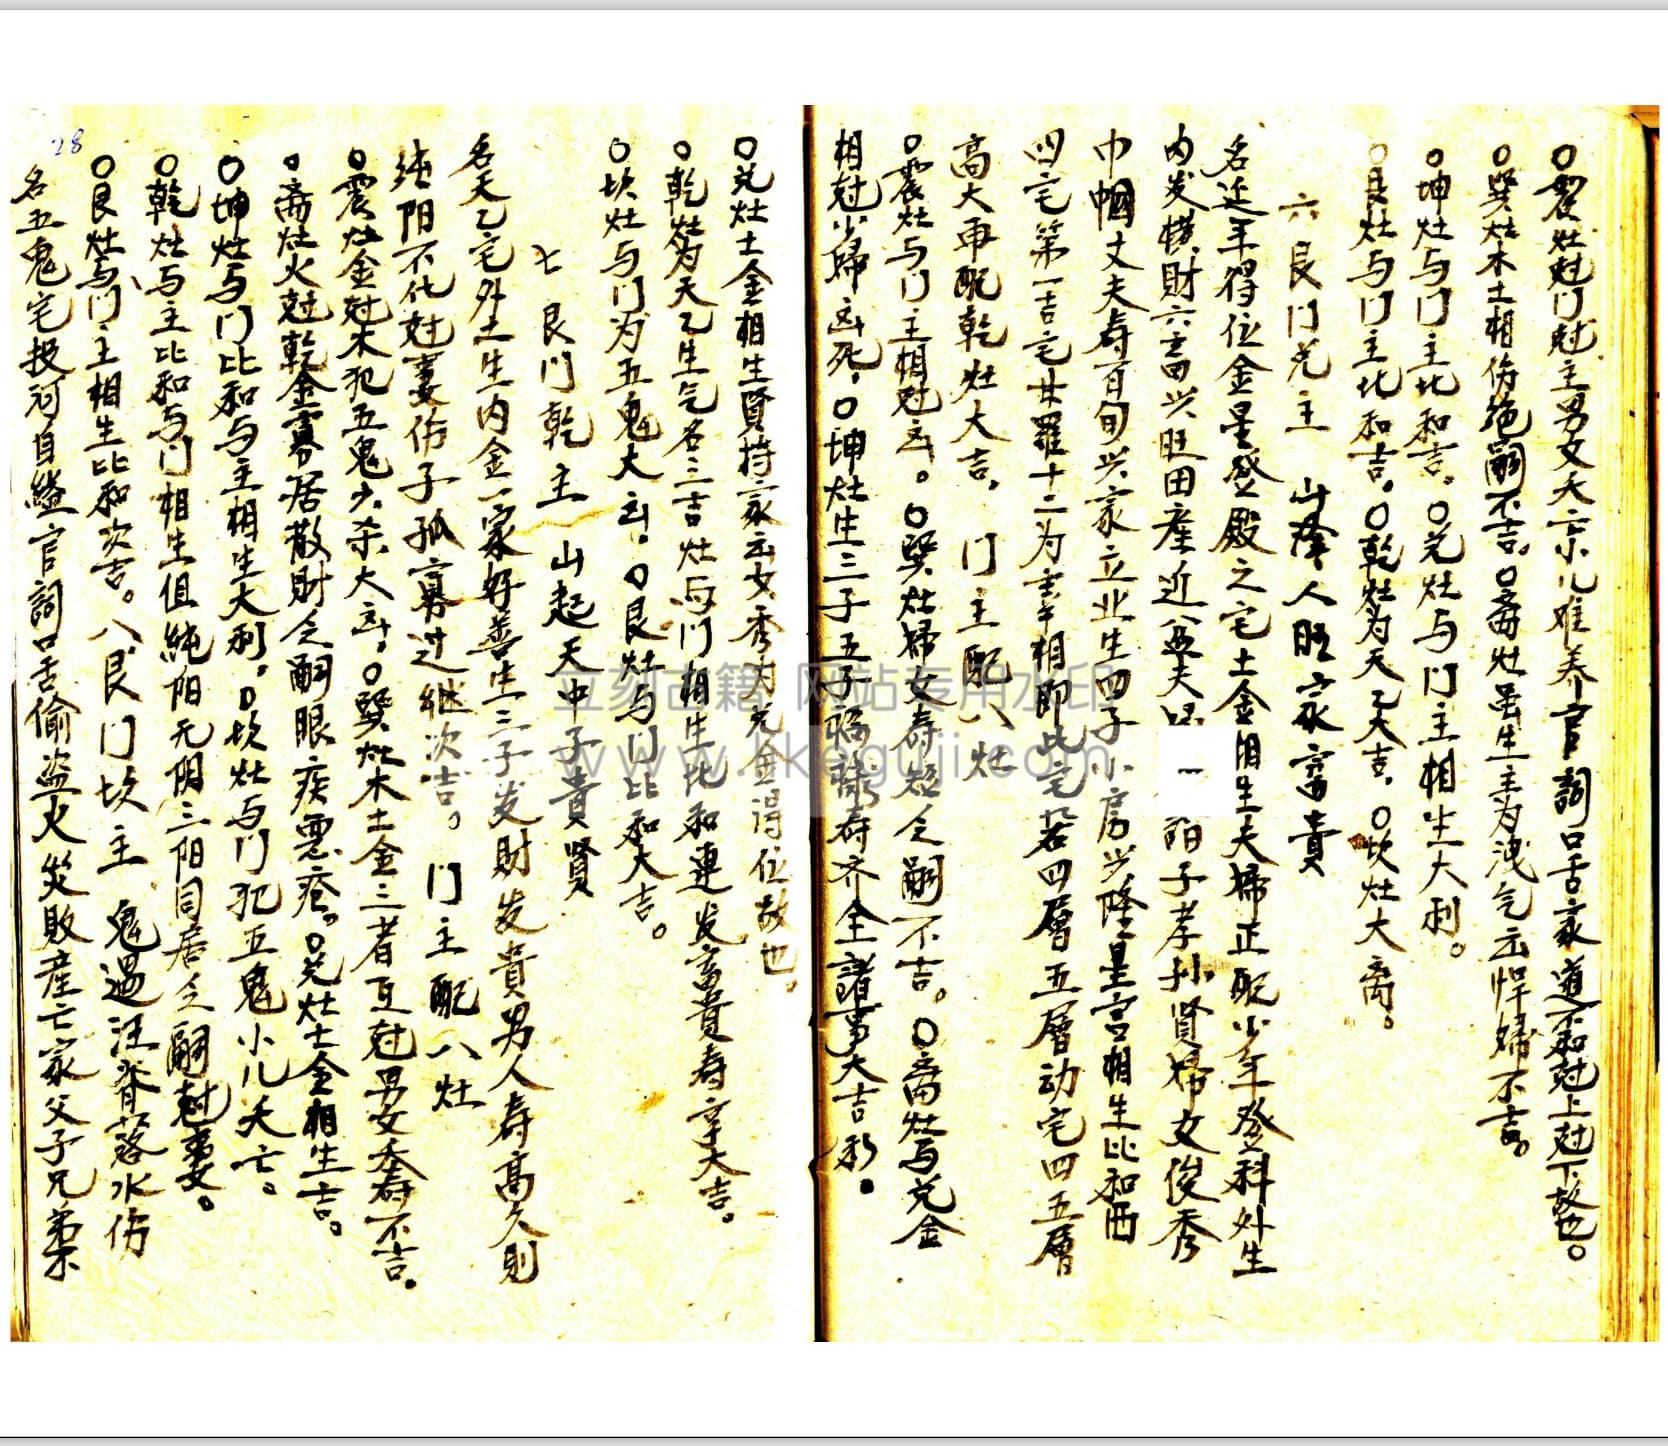 ○震灶尅门尅主男女夭亡小儿难养官詞口舌家道不和尅上尅下故也。
○巽灶木土相傷绝嗣不吉。○离灶虽生主为洩气云悍婦不吉。
○坤灶与门主比和吉。○兑灶与门主相生大利。
○艮灶与门主比和吉。○乾灶为天乙大吉。○坎灶大离。
六艮门兑主 山澤人旺家富貴
名延年得位金星登殿之宅土金相生夫婦正配少年登科外生
内发横財六畜兴旺田産近
阳子孝孙賢婦女俊秀
巾帼丈夫寿百旬兴家立业生四子小房兴隆星宫相生比和西
四宅第一吉宅廿羅十二为宰相即此宅若四層五層动宅四五層
高大再配乾灶大吉。 门主配八灶
○震灶与门主相尅凶。○巽灶婦女寿短乏嗣不吉。○离灶与兑金
相尅少婦凶死。○坤灶生三子五子福禄寿齐全諸事大吉利。
○兑灶土金相生賢持家云女秀为兑金得位故也。
○乾灶为天乙生气名三吉灶与门相生比和連发富貴寿享大吉。
○坎灶与门为五鬼大凶。○艮灶与门比和大吉。
七艮门乾主 山起天中子貴賢
名天乙宅外土生内金一家好善生三子发財发貴男人寿高久则
純阳不化尅妻伤子孤寡过继次吉。 门主配八灶
○震灶金尅木犯五鬼六杀大凶。○巽灶木土金三者互尅男女夭寿不吉。
○离灶火尅乾金寡居散財乏嗣眼疾悪疮。○兑灶土金相生吉。
○坤灶与门比和与主相生大利。○坎灶与门犯五鬼小儿夭亡。
○乾灶与主比和与门相生但純阳无阴三阳同居乏嗣尅妻。
○艮灶与门主相生比和次吉。 八艮门坎主 鬼遇汪洋落水伤
28
名五鬼宅投河自縊官詞口舌偷盗火災敗産亡家父子兄弟不
立刻古籍 网站专用水印